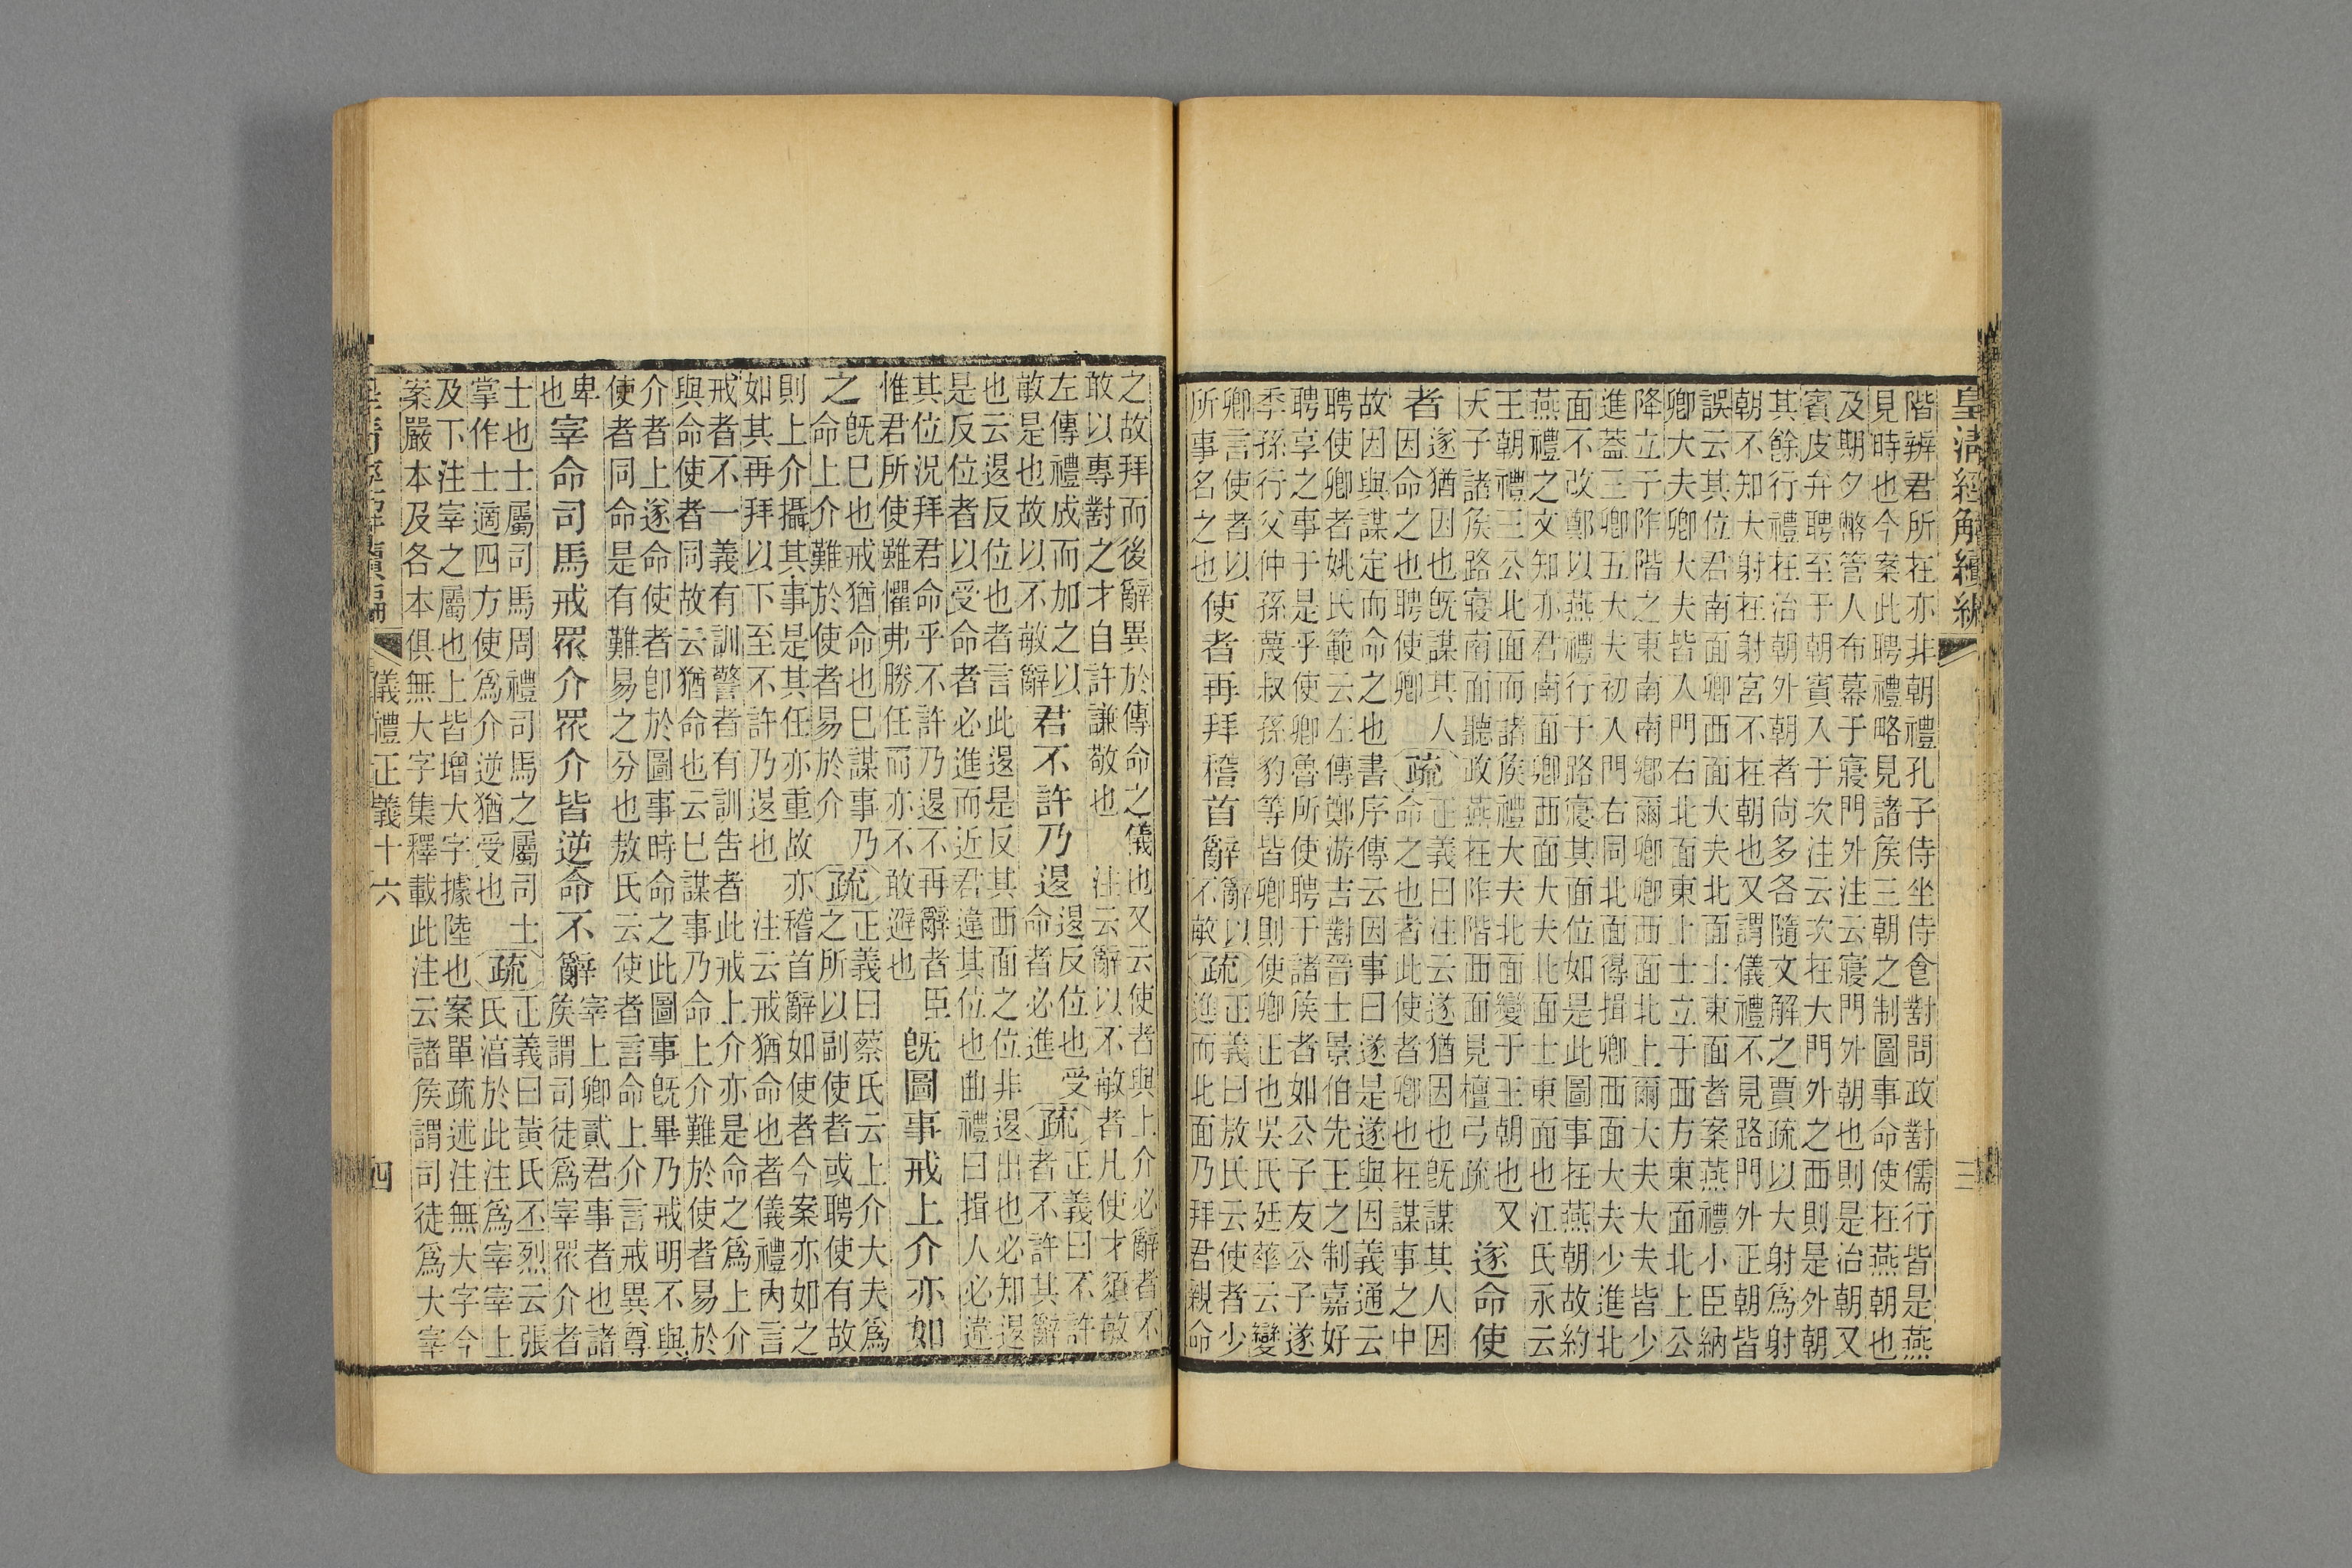 皇清經解續編 三
階辨君所在亦非朝禮孔子侍坐侍食對問政對儒行皆是燕
見時也今案此聘禮略見諸侯三朝之制圖事命使在燕朝也
及期夕幣管人布幕于寢門外注云寢門外朝也則是治朝又
賓皮弁聘至于朝賓入于次注云次在大門外之西則是外朝
其餘行禮在治朝外朝者尚多各隨文解之賈疏以大射爲射
朝不知大射在射宮不在朝也又謂儀禮不見路門外正朝皆
誤云其位君南面卿西面大夫北面士東面者案燕禮小臣納
卿大夫卿大夫皆入門右北面東上士立于西方東面北上公
降立于阼階之東南南鄉爾卿卿西面北上爾大夫大夫皆少
進蓋三卿五大夫初入門右同北面得揖卿西面大夫少進北
面不改鄭以燕禮行于路寢其面位如是此圖事在燕朝故約
燕禮之文知亦君南面卿西面大夫北面士東面也江氏永云
王朝禮三公北面而諸侯禮大夫北面變于王朝也又
天子諸侯路寢南面聽政燕在阼階西面見檀弓疏
遂命使
者
遂猶因也旣謀其人
因命之也聘使卿
疏
正義曰注云遂猶因也旣謀其人因
命之也者此使者卿也在謀事之中
故因與謀定而命之也書序傳云因事曰遂是遂與因義通云
聘使卿者姚氏範云左傳鄭游吉對晉士景伯先王之制嘉好
聘享之事于是乎使卿魯所使聘于諸侯者如公子友公子遂
季孫行父仲孫蔑叔孫豹等皆卿則使卿正也吳氏廷華云變
卿言使者以
所事名之也
使者再拜稽首辭
辭以
不敏
疏
正義曰敖氏云使者少
進而北面乃拜君親命
之故拜而後辭異於傳命之儀也又云使者與上介必辭者不
敢以專對之才自許謙敬也 注云辭以不敏者凡使才須敏
左傳禮成而加之以
敏是也故以不敏辭
君不許乃退
退反位也受
命者必進
疏
正義曰不許
者不許其辭
也云退反位也者言此退是反其西面之位非退出也必知退
是反位者以受命者必進而近君違其位也曲禮曰揖人必違
其位況拜君命乎不許乃退不再辭者臣
惟君所使雖懼弗勝任而亦不敢避也
旣圖事戒上介亦如
之
旣已也戒猶命也已謀事乃
命上介難於使者易於介
疏
正義曰蔡氏云上介大夫爲
之所以副使者或聘使有故
則上介攝其事是其任亦重故亦稽首辭如使者今案亦如之
如其再拜以下至不許乃退也 注云戒猶命也者儀禮內言
戒者不一義有訓警者有訓告者此戒上介亦是命之爲上介
與命使者同故云猶命也云已謀事乃命上介難於使者易於
介者上遂命使者卽於圖事時命之此圖事旣畢乃戒明不與
使者同命是有難易之分也敖氏云使者言命上介言戒異尊
卑
也
宰命司馬戒眾介眾介皆逆命不辭
宰上卿貳君事者也諸
侯謂司徒爲宰眾介者
士也士屬司馬周禮司馬之屬司士
掌作士適四方使爲介逆猶受也
疏
正義曰黃氏丕烈云張
氏淳於此注爲宰宰上
及下注宰之屬也上皆增大字據陸也案單疏述注無大字今
案嚴本及各本俱無大字集釋載此注云諸侯謂司徒爲大宰
皇清經解續編 儀禮正義十六 四